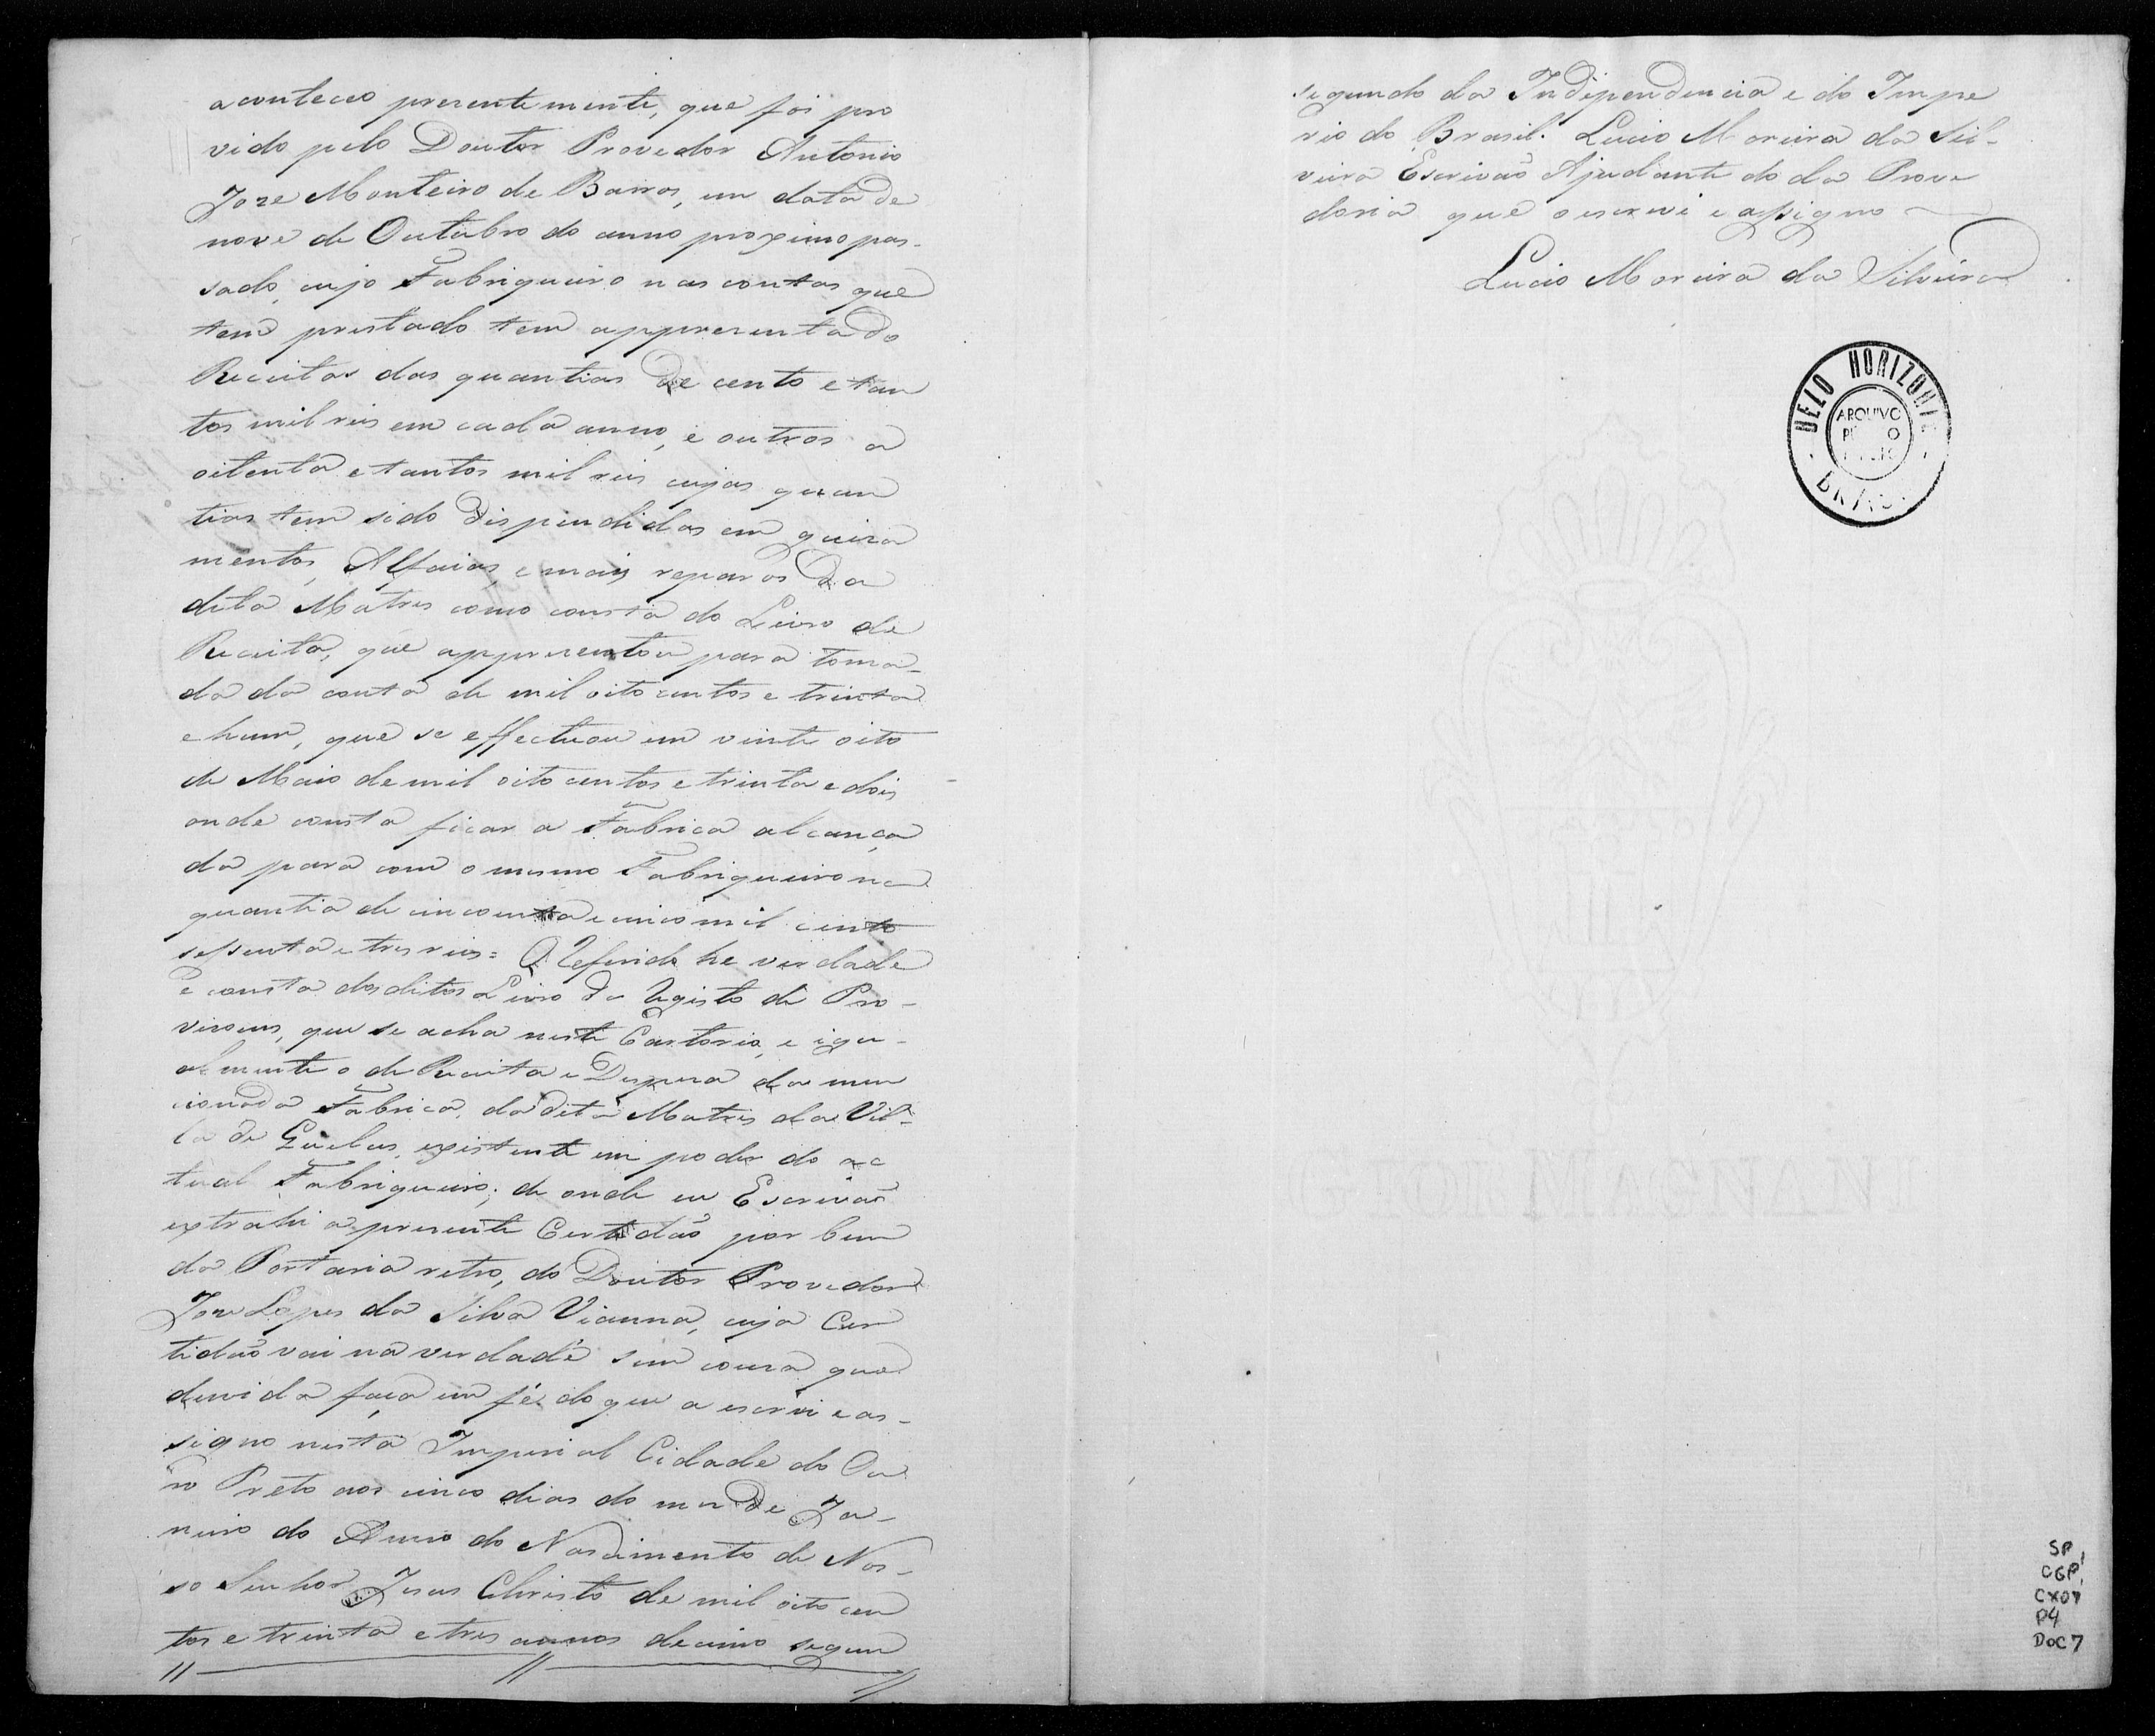 aconteceo prezentemente, que foi pro
vido pelo Doutor Provedor Antonio
Joze Monteiro de Barros, em data de
nove de Outubro do anno proximo pas-
sado, cujo Fabriqueiro nas contas que
tem prestado tem apprezentado
Receitas das quantias de cento e tan
tos mil reis em cada anno, e outros a
oitenta e tantos mil reis cujas quan
tias tem sido dispendidas em guiza
mentos, Alfaias, e mais reparos da
dita Matris como consta do Livro de
Receita, que apprezentou para toma-
da da conta de mil oito centos e trinta
e hum, que se effectuou em vinte oito
de Maio de mil oito centos e trinta e dois
onde consta ficar a Fabrica alcança
da para com o mesmo Fabriqueiro na
quantia de cincoenta e cinco mil cento
sessenta e tres reis = O Referido he verdade
e consta dos ditos Livro de Registo de Pro-
vizoens, que se acha neste Cartorio, e igu-
almente o de Receita e Despeza da men
cionada Fabrica, da dita Matris da Vil-
la de Queluz, existente em poder do ac
tual Fabriqueiro; de onde eu Escrivaõ
extrahi a prezente Certidaõ por bem
da Portaria retro, do Doutor Provedor
Joze Lopes da Silva Vianna, cuja Cer
tidaõ vai na verdade sem couza que
duvida faça em fé do que a escrevi e as-
signo nesta Imperial Cidade do Ou
ro Preto aos cinco dias do mez de Ja-
neiro do Anno do Nascimento de Nos-
so Senhor Jesus Christo de mil oito cen
tos e trinta e tres annos decimo segun
segundo da Indipendencia e do Impe
rio do Brasil. Lucio Moreira da Sil-
veira Escrivaõ Ajudante do da Prove
doria que o escrevi e assigno
Lucio Moreira da Silveira
BELO HORIZONTE
ARQUIVO
BRASIL
SP
CGP
CX07
P4
DOC 7